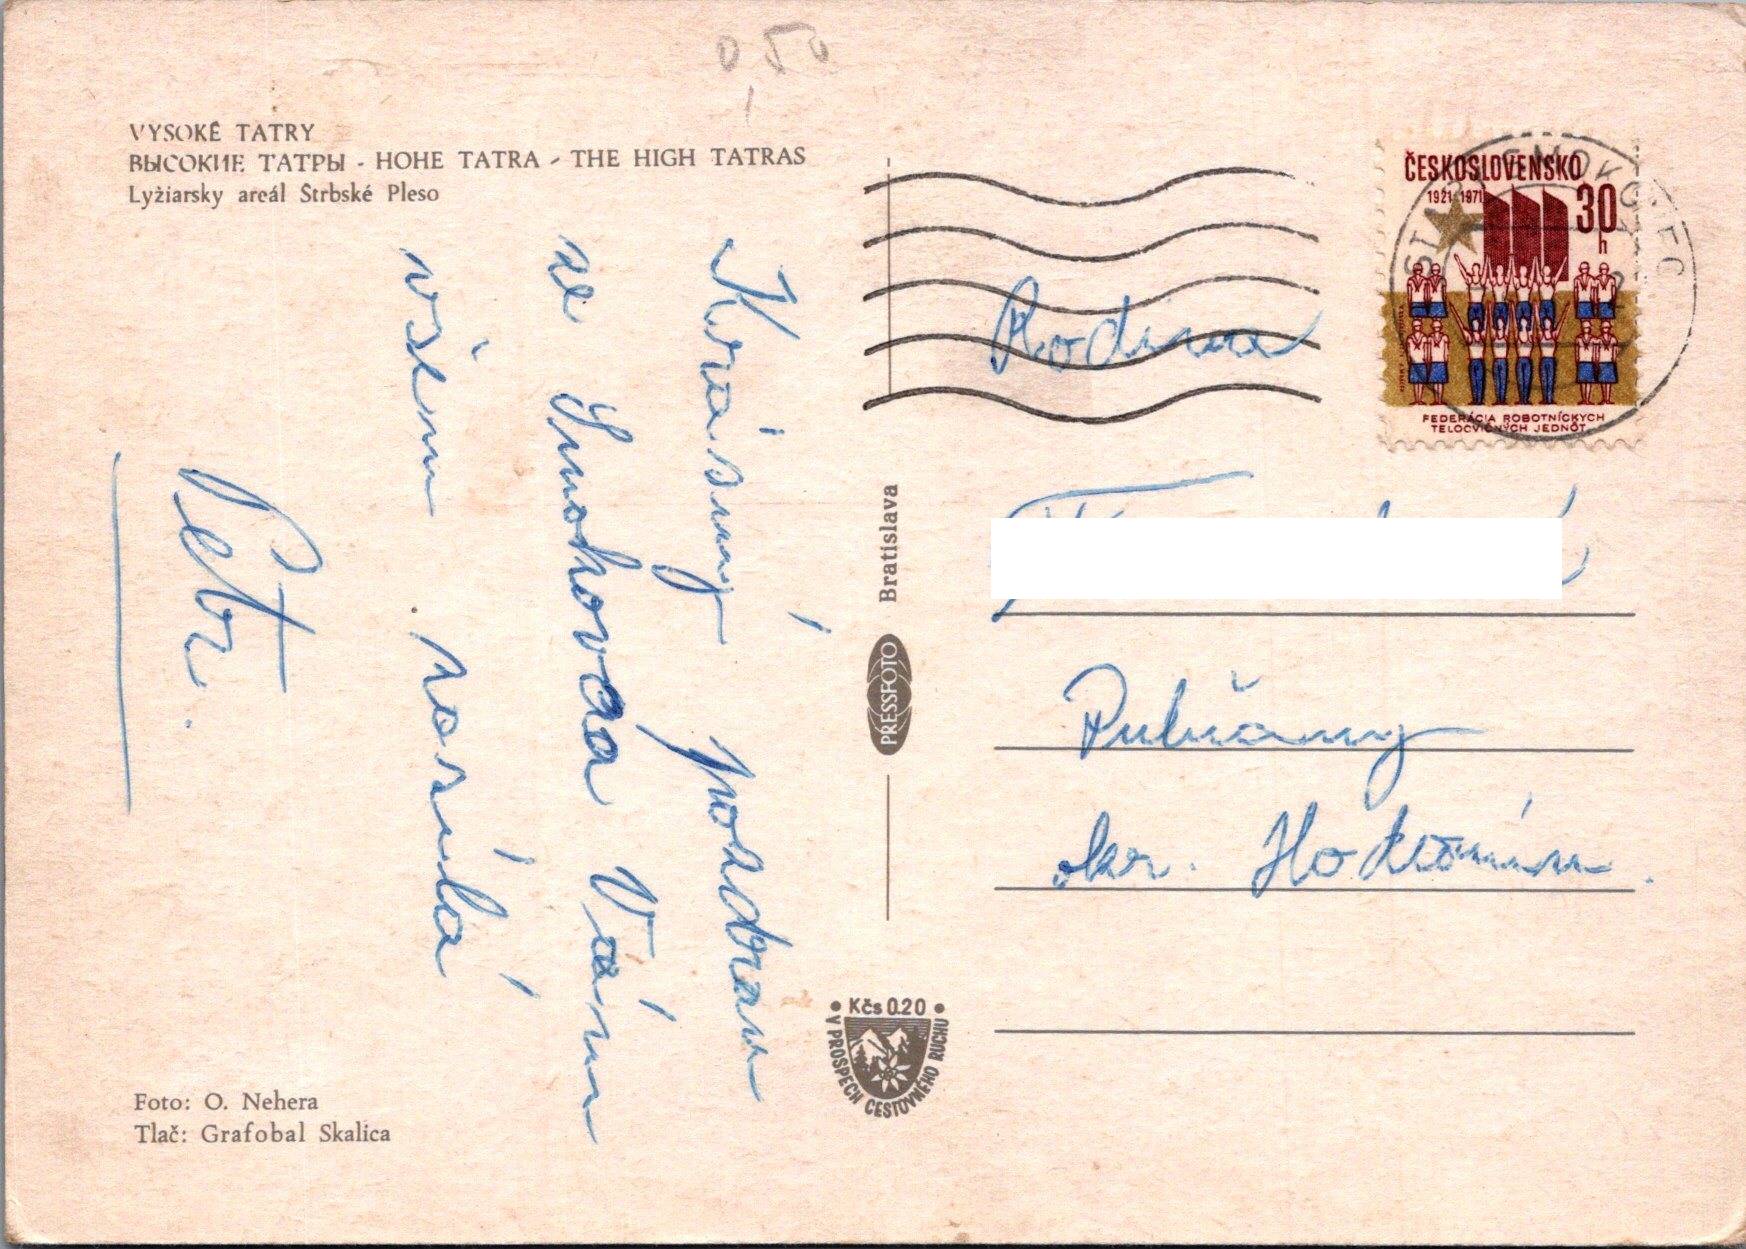 0.50
VYSOKÉ TATRY
ВЫСОКИЕ ТАТРЫ - HOHE TATRA - THE HIGH TATRAS
Lyžiarsky areál Štrbské Pleso
Krásný pozdrav
ze Smokovca Vám
všem posílá
Petr.
Foto: O. Nehera
Tlač: Grafobal Skalica
Bratislava
PRESSFOTO
• Kčs 0.20 •
V PROSPECH CESTOVNÉHO RUCHU
ČESKOSLOVENSKO
1921-1971
30
h
FEDERÁCIA ROBOTNÍCKYCH
TELOCVIČNÝCH JEDNÔT
STARÝ SMOKOVEC
Rodina
okr. Hodonín.